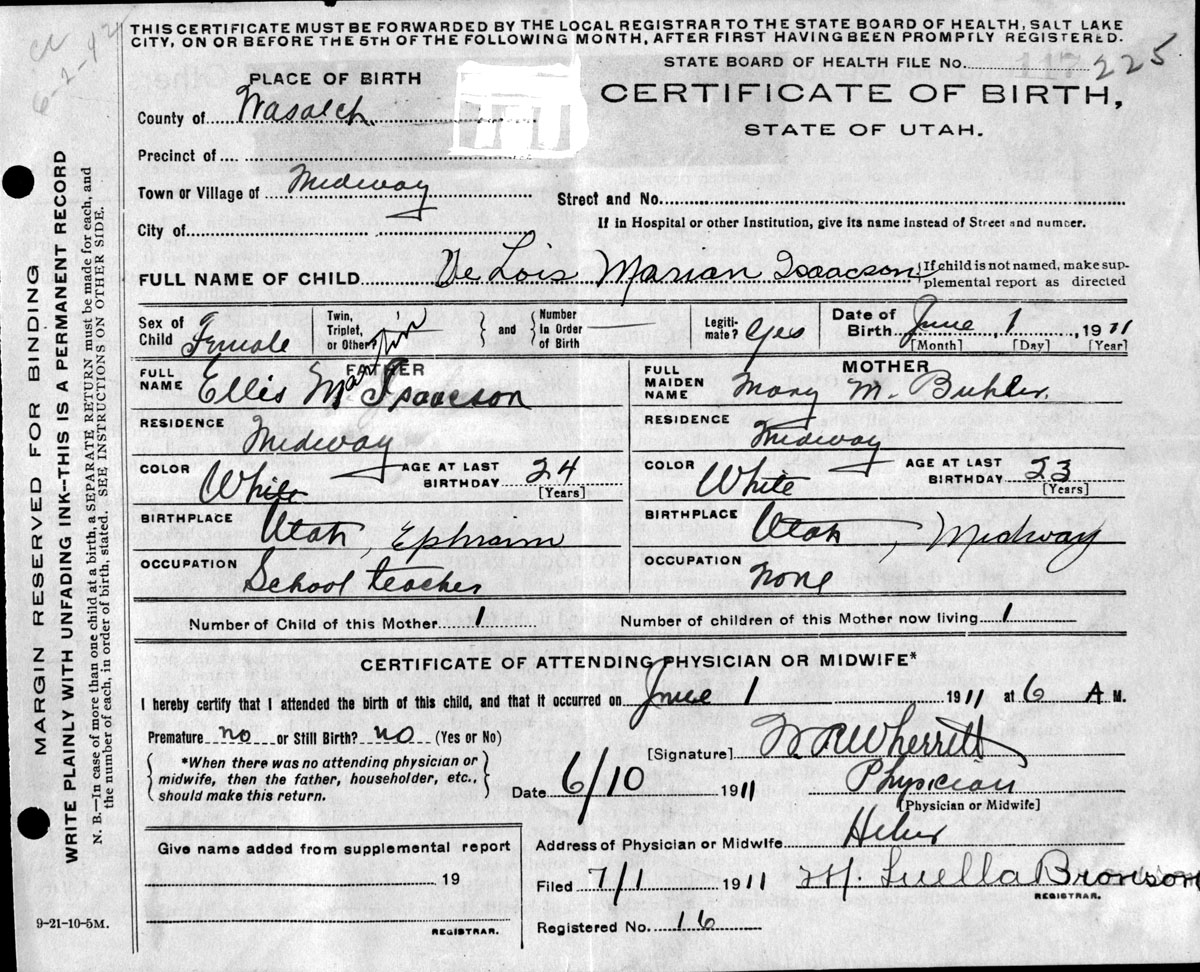 THIS CERTIFICATE MUST BE FORWARDED BY THE LOCAL REGISTRAR TO THE STATE BOARD OF HEALTH, SALT LAKE
CITY, ON OR BEFORE THE 5TH OF THE FOLLOWING MONTH, AFTER FIRST HAVING BEEN PROMPTLY REGISTERED.
6-2-42
STATE BOARD OF HEALTH FILE No. 225
PLACE OF BIRTH
CERTIFICATE OF BIRTH,
STATE OF UTAH.
County of Wasatch
Precinct of
Town or Village of Midway
Street and No.
City of
If in Hospital or other Institution, give its name instead of Street and number.
FULL NAME OF CHILD De Lois Marian Isaacson {If child is not named, make sup-
plemental report as directed
Sex of Child Female Twin, Triplet, or Other? } and { Number In Order of Birth Legiti- mate? Yes Date of Birth June 1, 1911
[Month] [Day] [Year]
FATHER
FULL NAME Ellis Isaacson
RESIDENCE Midway
COLOR White AGE AT LAST BIRTHDAY 24
[Years]
BIRTHPLACE Utah, Ephraim
OCCUPATION School teacher
MOTHER
FULL MAIDEN NAME Mary M. Buhler
RESIDENCE Midway
COLOR White AGE AT LAST BIRTHDAY 23
[Years]
BIRTHPLACE Utah, Midway
OCCUPATION None
Number of Child of this Mother 1 Number of children of this Mother now living 1
CERTIFICATE OF ATTENDING PHYSICIAN OR MIDWIFE*
I hereby certify that I attended the birth of this child, and that it occurred on June 1 1911 at 6 A M.
Premature no or Still Birth? no (Yes or No)
[Signature] Wherritt
{*When there was no attending physician or
midwife, then the father, householder, etc.,
should make this return.}
Date 6/10 1911 Physician
[Physician or Midwife]
Address of Physician or Midwife Heber
Give name added from supplemental report
19
REGISTRAR.
Filed 7/1 1911 Luella Bronson
REGISTRAR.
Registered No. 16
9-21-10-5M.
MARGIN RESERVED FOR BINDING
WRITE PLAINLY WITH UNFADING INK—THIS IS A PERMANENT RECORD
N. B.—In case of more than one child at a birth, a SEPARATE RETURN must be made for each, and
the number of each, in order of birth, stated. SEE INSTRUCTIONS ON OTHER SIDE.